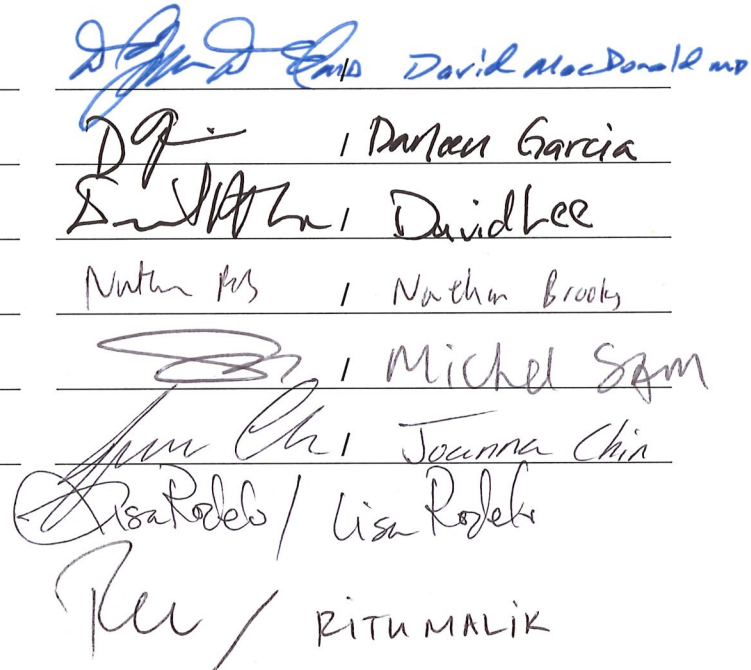 MD / David MacDonald MD
D / Darleen Garcia
/ David Lee
Nathan / Nathan Brooks
/ Michel SAM
/ Joanna Chin
Lisa Rodelo / Lisa Rodelo
/ RITU MALIK